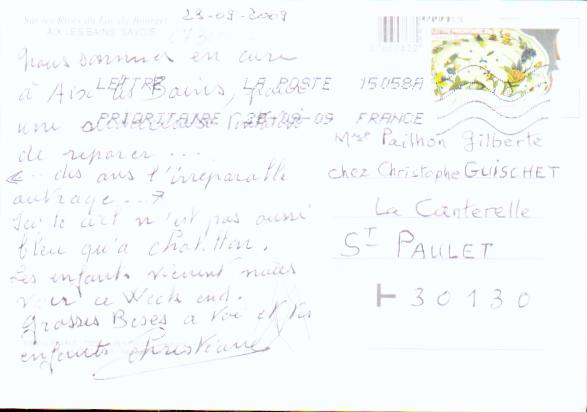 23-09-2009
Sur les Rives du Lac du Bourget
AIX LES BAINS SAVOIE
Nous sommes en cure
à Aix les Bains,
une
de reparer ...
"... des ans l'irreparable
outrage ..."
Ici le ciel n'est pas aussi
bleu qu'à Chatillon.
Les enfants viennent nous
voir ce Week end.
Grosses Bises a toi et tes
enfants Christiane
LETTRE LA POSTE 15058A
PRIORITAIRE 09-09 FRANCE
Mme Pailhon Gilberte
chez Christophe GUISCHET
La Canterelle
ST PAULET
30130